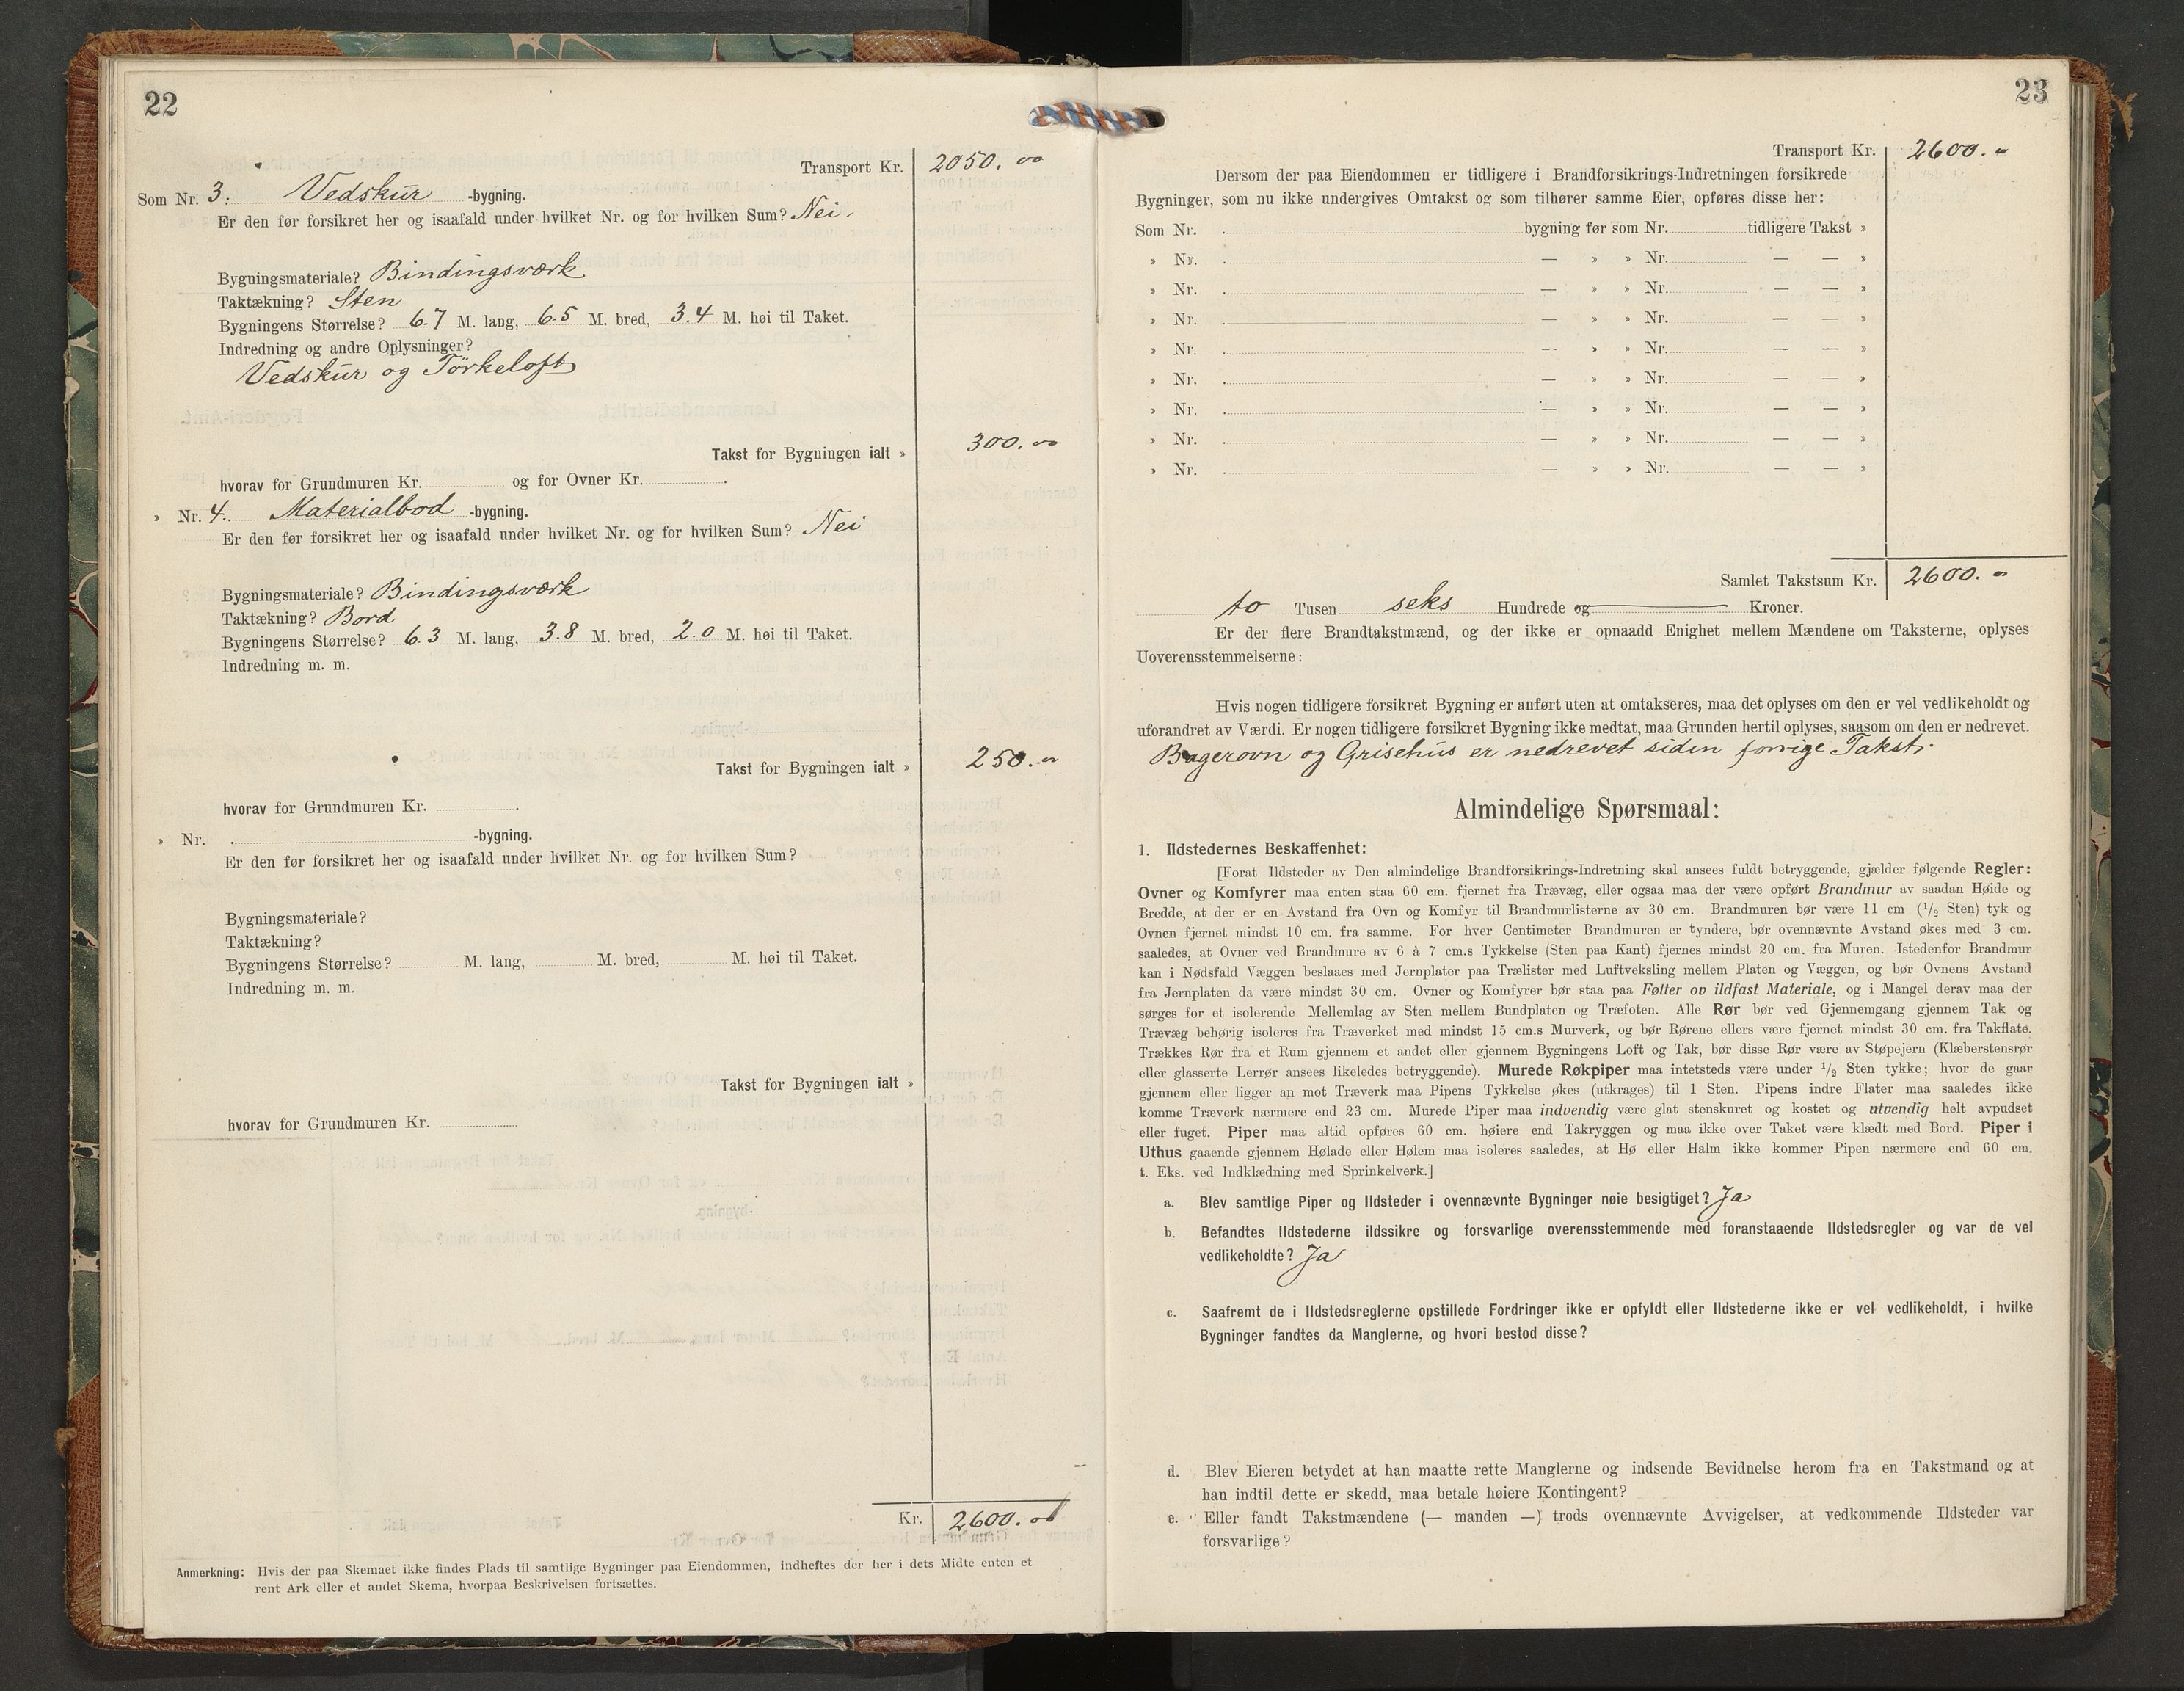 22
Transport Kr. 2050.00
Som Nr. 3. Vedskur -bygning.
Er den før forsikret her og isaafald under hvilket Nr. og for hvilken Sum? Nei.
Bygningsmateriale? Bindingsværk
Taktækning? Sten
Bygningens Størrelse? 6.7 M. lang, 6.5 M. bred, 3.4 M. høi til Taket.
Indredning og andre Oplysninger?
Vedskur og Törkeloft
Takst for Bygningen ialt » 300.00
hvorav for Grundmuren Kr. og for Ovner Kr. .
» Nr. 4. Materialbod -bygning.
Er den før forsikret her og isaafald under hvilket Nr. og for hvilken Sum? Nei
Bygningsmateriale? Bindingsværk
Taktækning? Bord
Bygningens Størrelse? 6.3 M. lang, 3.8 M. bred, 2.0 M. høi til Taket.
Indredning m. m.
Takst for Bygningen ialt » 250.00
hvorav for Grundmuren Kr. .
» Nr. . -bygning.
Er den før forsikret her og isaafald under hvilket Nr. og for hvilken Sum?
Bygningsmateriale?
Taktækning?
Bygningens Størrelse? M. lang, M. bred, M. høi til Taket.
Indredning m. m.
Takst for Bygningen ialt »
hvorav for Grundmuren Kr.
Kr. 2600.00
Anmerkning: Hvis der paa Skemaet ikke findes Plads til samtlige Bygninger paa Eiendommen, indheftes der her i dets Midte enten et
rent Ark eller et andet Skema, hvorpaa Beskrivelsen fortsættes.
23
Transport Kr. 2600. "
Dersom der paa Eiendommen er tidligere i Brandforsikrings-Indretningen forsikrede
Bygninger, som nu ikke undergives Omtakst og som tilhører samme Eier, opføres disse her:
Som Nr. . bygning før som Nr. tidligere Takst »
» Nr. . — » » Nr. — — »
» Nr. . — » » Nr. — — »
» Nr. . — » » Nr. — — »
» Nr. . — » » Nr. — — »
» Nr. . — » » Nr. — — »
» Nr. . — » » Nr. — — »
» Nr. . — » » Nr. — — »
» Nr. . — » » Nr. — — »
Samlet Takstsum Kr. 2600. "
to Tusen seks Hundrede og Kroner.
Er der flere Brandtakstmænd, og der ikke er opnaadd Enighet mellem Mændene om Taksterne, oplyses
Uoverensstemmelserne:
Hvis nogen tidligere forsikret Bygning er anført uten at omtakseres, maa det oplyses om den er vel vedlikeholdt og
uforandret av Værdi. Er nogen tidligere forsikret Bygning ikke medtat, maa Grunden hertil oplyses, saasom om den er nedrevet.
Bagerovn og Grisehus er nedrevet siden forrige Takst.
Almindelige Spørsmaal:
1. Ildstedernes Beskaffenhet:
[Forat Ildsteder av Den almindelige Brandforsikrings-Indretning skal ansees fuldt betryggende, gjælder følgende Regler:
Ovner og Komfyrer maa enten staa 60 cm. fjernet fra Trævæg, eller ogsaa maa der være opført Brandmur av saadan Høide og
Bredde, at der er en Avstand fra Ovn og Komfyr til Brandmurlisterne av 30 cm. Brandmuren bør være 11 cm (1/2 Sten) tyk og
Ovnen fjernet mindst 10 cm. fra samme. For hver Centimeter Brandmuren er tyndere, bør ovennævnte Avstand økes med 3 cm.
saaledes, at Ovner ved Brandmure av 6 à 7 cm.s Tykkelse (Sten paa Kant) fjernes mindst 20 cm. fra Muren. Istedenfor Brandmur
kan i Nødsfald Væggen beslaaes med Jernplater paa Trælister med Luftveksling mellem Platen og Væggen, og bør Ovnens Avstand
fra Jernplaten da være mindst 30 cm. Ovner og Komfyrer bør staa paa Føtter ov ildfast Materiale, og i Mangel derav maa der
sørges for et isolerende Mellemlag av Sten mellem Bundplaten og Træfoten. Alle Rør bør ved Gjennemgang gjennem Tak og
Trævæg behørig isoleres fra Træverket med mindst 15 cm.s Murverk, og bør Rørene ellers være fjernet mindst 30 cm. fra Takflate.
Trækkes Rør fra et Rum gjennem et andet eller gjennem Bygningens Loft og Tak, bør disse Rør være av Støpejern (Klæberstensrør
eller glasserte Lerrør ansees likeledes betryggende). Murede Røkpiper maa intetsteds være under 1/2 Sten tykke; hvor de gaar
gjennem eller ligger an mot Træverk maa Pipens Tykkelse økes (utkrages) til 1 Sten. Pipens indre Flater maa saaledes ikke
komme Træverk nærmere end 23 cm. Murede Piper maa indvendig være glat stenskuret og kostet og utvendig helt avpudset
eller fuget. Piper maa altid opføres 60 cm. høiere end Takryggen og maa ikke over Taket være klædt med Bord. Piper i
Uthus gaaende gjennem Hølade eller Hølem maa isoleres saaledes, at Hø eller Halm ikke kommer Pipen nærmere end 60 cm.
t. Eks. ved Indklædning med Sprinkelverk.]
a. Blev samtlige Piper og Ildsteder i ovennævnte Bygninger nøie besigtiget? Ja
b. Befandtes Ildstederne ildssikre og forsvarlige overensstemmende med foranstaaende Ildstedsregler og var de vel
vedlikeholdte? Ja
c. Saafremt de i Ildstedsreglerne opstillede Fordringer ikke er opfyldt eller Ildstederne ikke er vel vedlikeholdt, i hvilke
Bygninger fandtes da Manglerne, og hvori bestod disse?
d. Blev Eieren betydet at han maatte rette Manglerne og indsende Bevidnelse herom fra en Takstmand og at
han indtil dette er skedd, maa betale høiere Kontingent?
e. Eller fandt Takstmændene (— manden —) trods ovennævnte Avvigelser, at vedkommende Ildsteder var
forsvarlige?